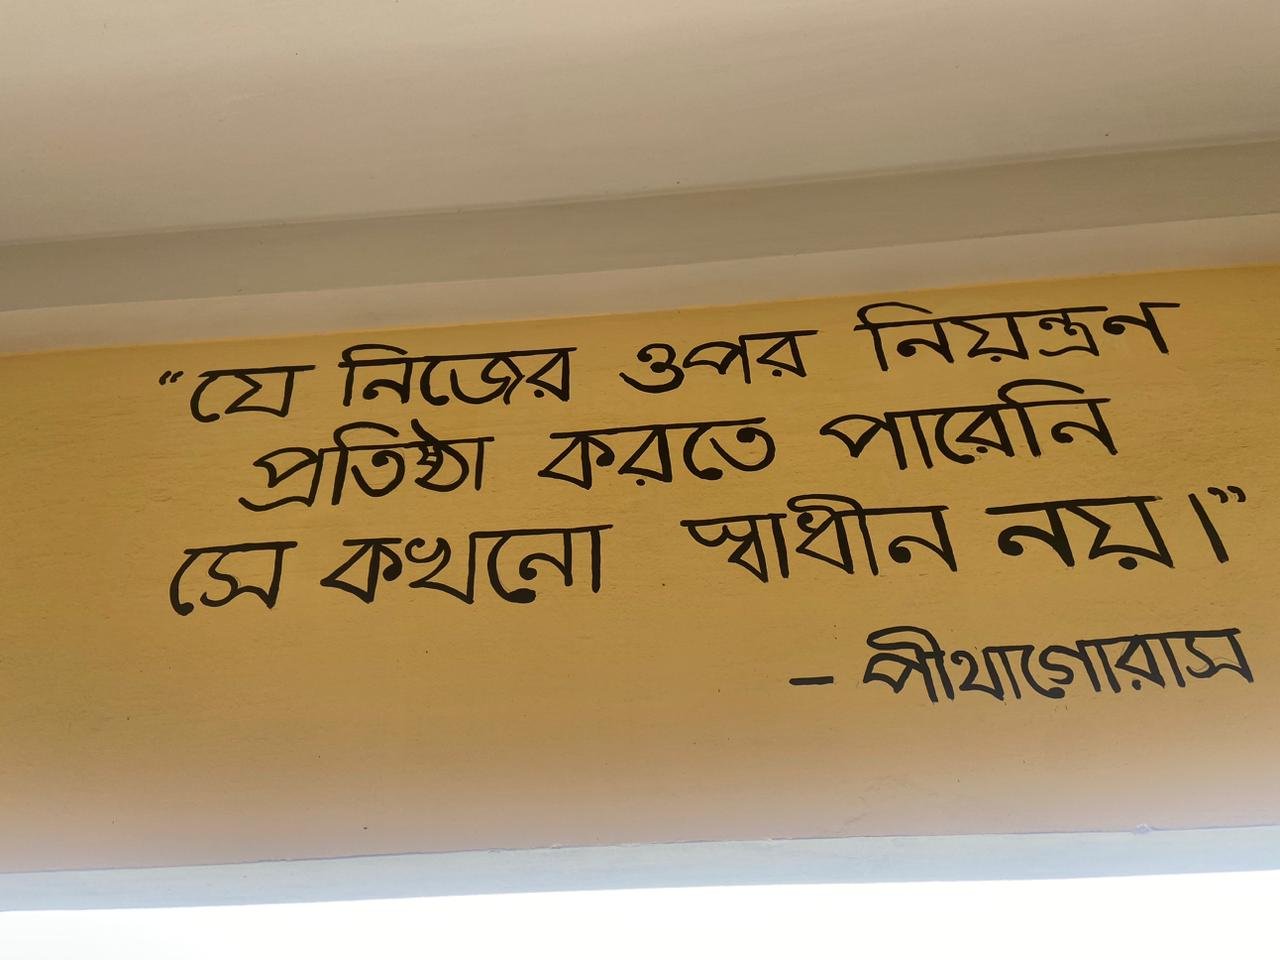 “যে নিজের ওপর নিয়ন্ত্রন
প্রতিষ্ঠা করতে পারেনি
সে কখনো স্বাধীন নয়।”
- পীথাগোরাস